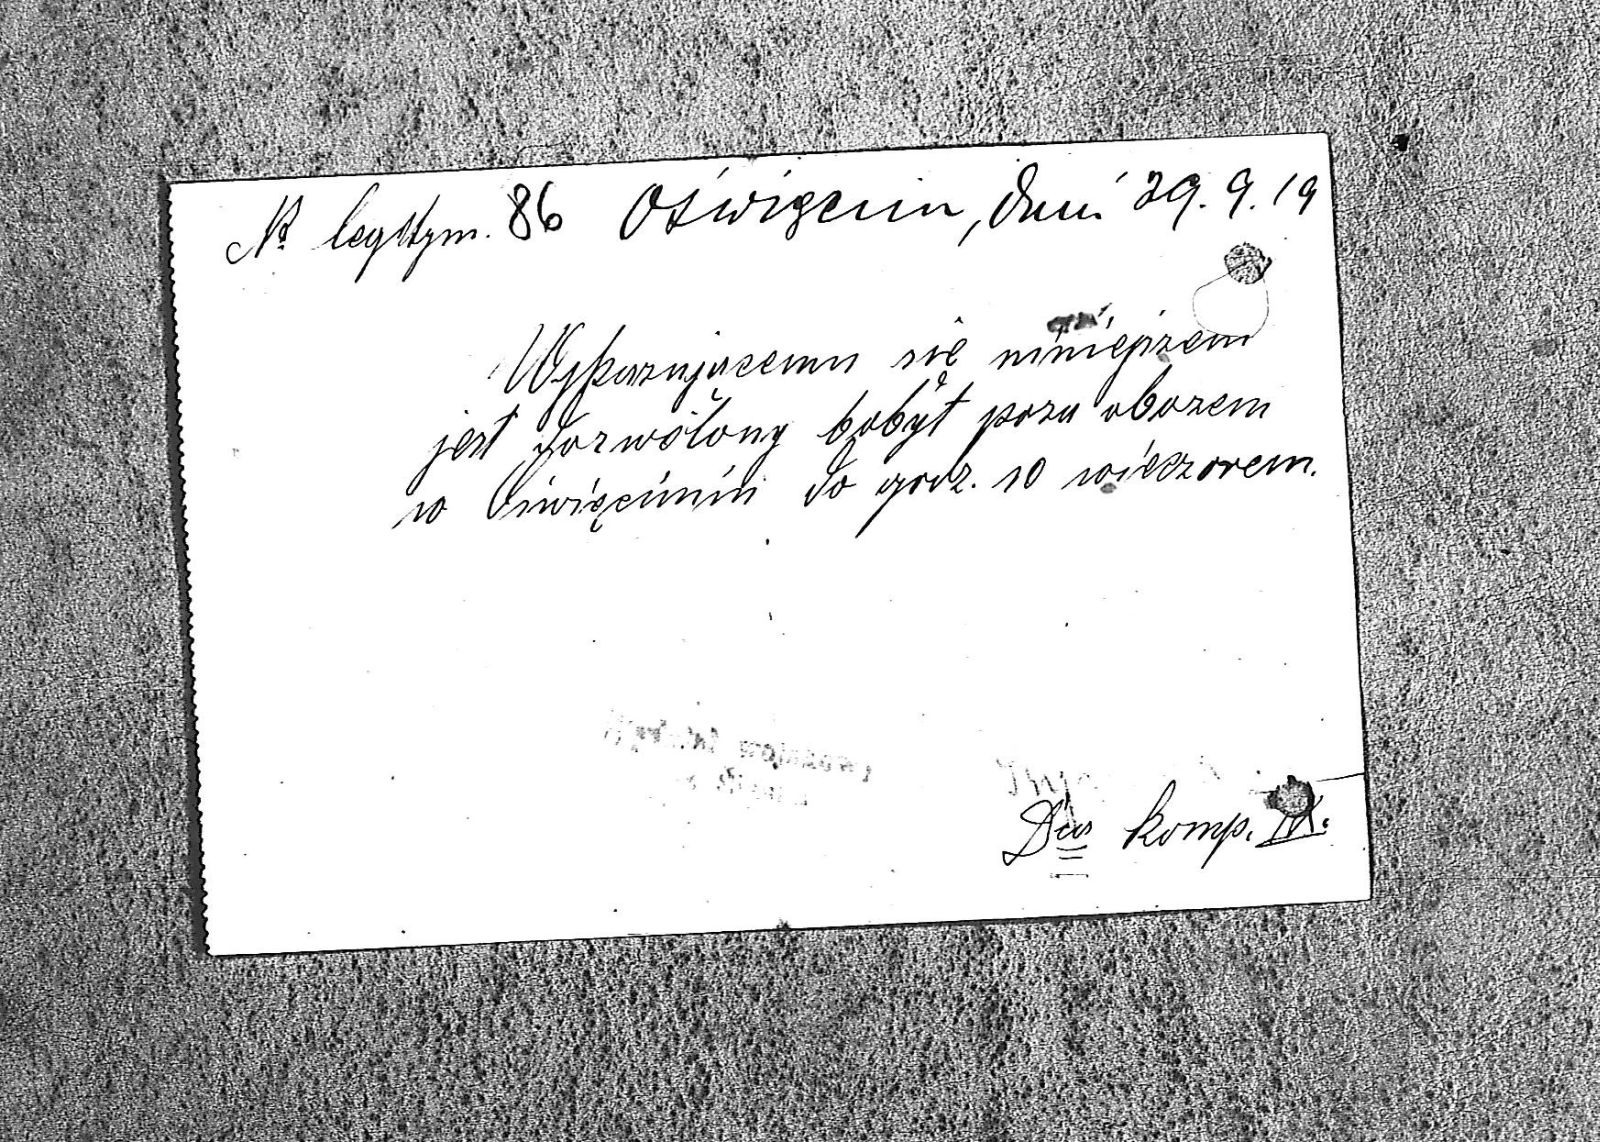 № legitym. 86 Oświęcim, dnia 29. 9. 19
Wykazującemu się niniejszem
jest dozwolony pobyt poza obozem
w Oświęcimiu do godz. 10 wieczorem.
komp. IX.